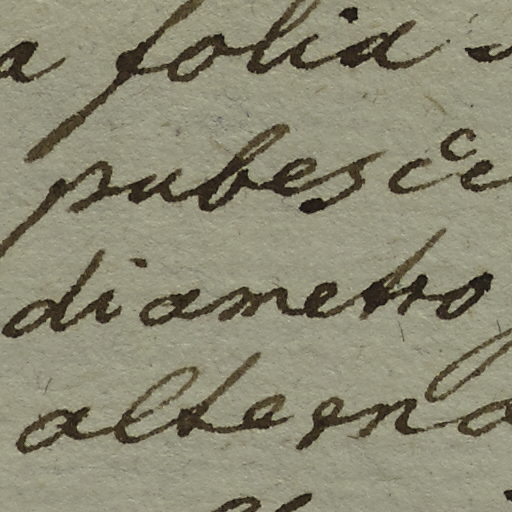 a folia
pubesce
diametro
alterna